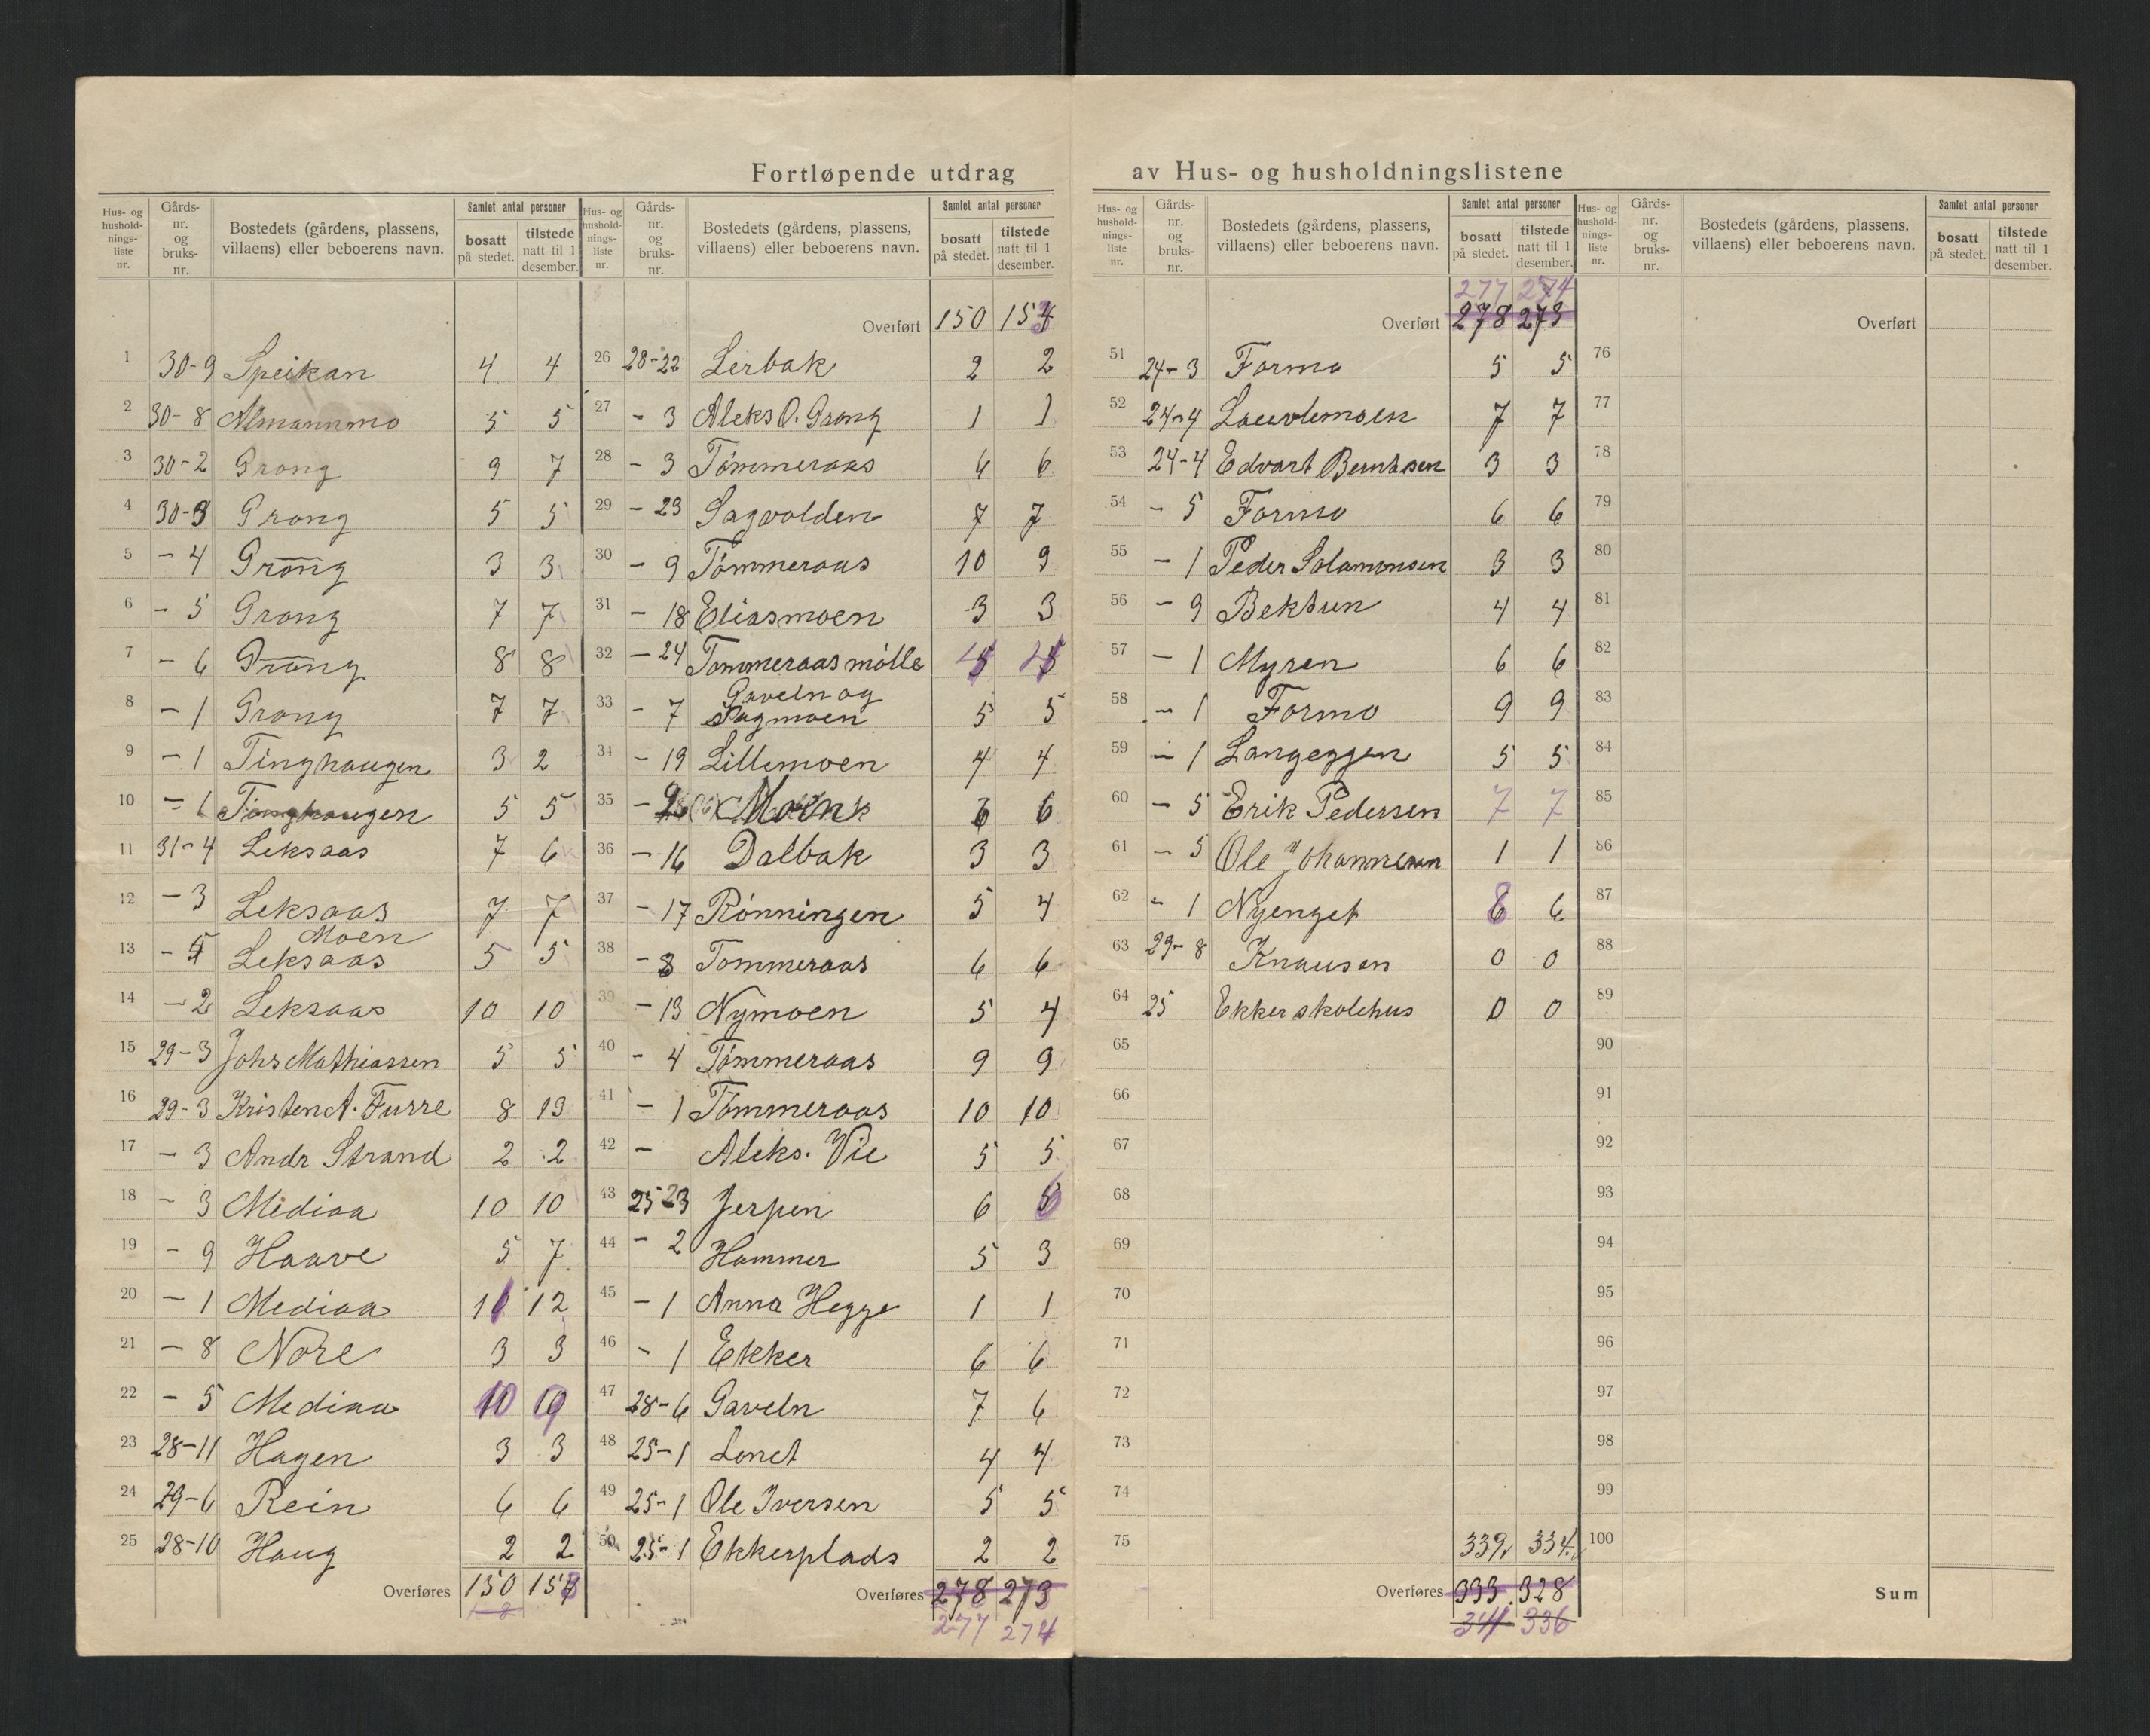 Fortløpende utdrag av Hus- og husholdningslistene
Hus- og hushold-nings-liste nr. Gårds-nr. og bruks-nr. Bostedets (gårdens, plassens, villaens) eller beboerens navn. Samlet antal personer bosatt på stedet. tilstede natt til 1 desember.
1 30-9 Speikan 4 4
2 30-8 Almannmo 5 5
3 30-2 Grong 9 7
4 30-3 Grong 5 5
5 - 4 Grong 3 3
6 - 5 Grong 7 7
7 - 6 Grong 8 8
8 - 1 Grong 7 7
9 - 1 Tinghaugen 3 2
10 - 1 Tinghaugen 5 5
11 31-4 Leksaas 7 6
12 - 3 Leksaas 7 7
13 - Leksaas Moen 5 5
14 - 2 Leksaas 10 10
15 29-3 Johs Mathiassen 5 5
16 29-3 Kristen A. Furre 8 13
17 - 3 Andr Strand 2 2
18 - 3 Mediaa 10 10
19 - 9 Haave 5 7
20 - 1 Mediaa 12
21 - 8 Nore 3 3
22 - 5 Mediaa 10
23 28-11 Hagen 3 3
24 29-6 Rein 6 6
25 28-10 Haug 2 2
Overføres 150 153
Hus- og hushold-nings-liste nr. Gårds-nr. og bruks-nr. Bostedets (gårdens, plassens, villaens) eller beboerens navn. Samlet antal personer bosatt på stedet. tilstede natt til 1 desember.
Overført 150 153
26 28-22 Lerbak 2 2
27 - 3 Aleks O. Grong 1 1
28 - 3 Tømmeraas 6 6
29 - 23 Sagvolden 7 7
30 - 9 Tømmeraas 10 9
31 - 18 Eliasmoen 3 3
32 - 24 Tømmeraas mølle
33 - 7 Gaveln og Sagmoen 5 5
34 - 19 Lillemoen 4 4
35 - 6 6
36 - 16 Dalbak 3 3
37 - 17 Rønningen 5 4
38 - 8 Tømmeraas 6 6
39 - 13 Nymoen 5 4
40 - 4 Tømmeraas 9 9
41 - 1 Tømmeraas 10 10
42 - Aleks. Vie 5 5
43 25 23 Jerpen 6 6
44 - 2 Hammer 5 3
45 - 1 Anna Hegge 1 1
46 - 1 Ekker 6 6
47 28-6 Gaveln 7 6
48 25-1 Lonet 4 4
49 25-1 Ole Iversen 5 5
50 25-1 Ekkerplads 2 2
Overføres 278 273
277 274
Hus- og hushold-nings-liste nr. Gårds-nr. og bruks-nr. Bostedets (gårdens, plassens, villaens) eller beboerens navn. Samlet antal personer bosatt på stedet. tilstede natt til 1 desember.
277 274
Overført 278 273
51 24-3 Formo 5 5
52 24-4 Lauvlemoen 7 7
53 24-4 Edvart Berntsen 3 3
54 - 5 Formo 6 6
55 - 1 Peder Salamonsen 3 3
56 - 9 Bektun 4 4
57 - 1 Myren 6 6
58 - 1 Formo 9 9
59 - 1 Langeggen 5 5
60 - 5 Erik Pedersen 7 7
61 - 5 Ole Johannesen 1 1
62 - 1 Nyenget 6
63 29-8 Knausen 0 0
64 25 Ekker skolehus 0 0
65
66
67
68
69
70
71
72
73
74
75 339 334
Overføres 333 328
341 336
Hus- og hushold-nings-liste nr. Gårds-nr. og bruks-nr. Bostedets (gårdens, plassens, villaens) eller beboerens navn. Samlet antal personer bosatt på stedet. tilstede natt til 1 desember.
Overført
76
77
78
79
80
81
82
83
84
85
86
87
88
89
90
91
92
93
94
95
96
97
98
99
100
Sum